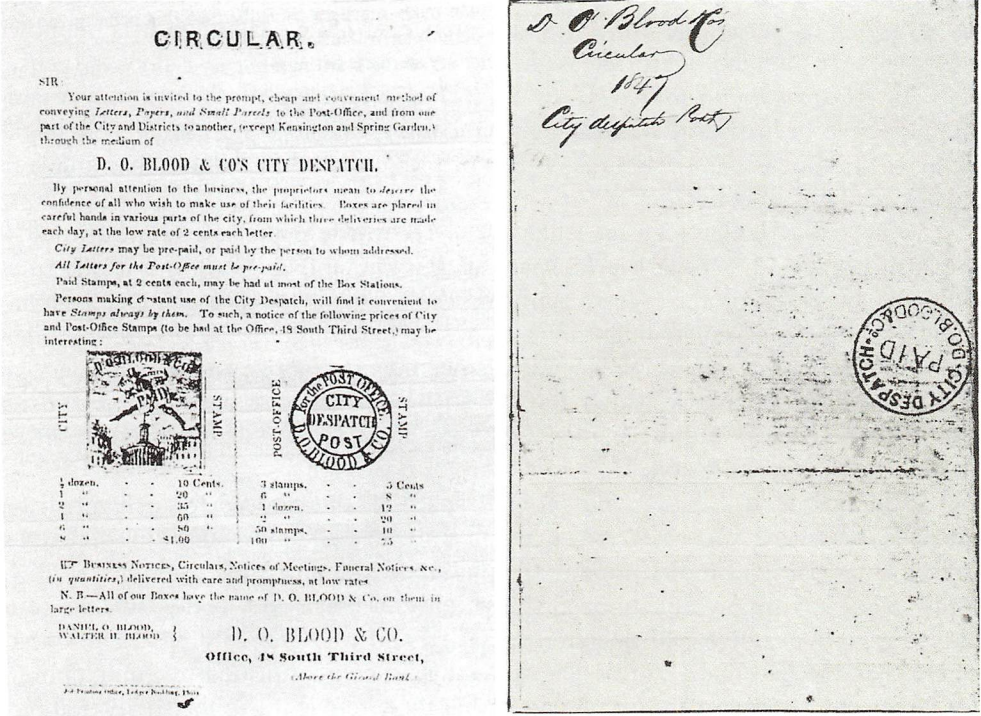 CIRCULAR.
SIR
Your attention is invited to the prompt, cheap and convenient method of
conveying Letters, Papers, and Small Parcels to the Post-Office, and from one
part of the City and Districts to another, (except Kensington and Spring Garden,)
through the medium of
D. O. BLOOD & CO'S CITY DESPATCH.
By personal attention to the business, the proprietors mean to deserve the
confidence of all who wish to make use of their facilities. Boxes are placed in
careful hands in various parts of the city, from which three deliveries are made
each day, at the low rate of 2 cents each letter.
City Letters may be pre-paid, or paid by the person to whom addressed.
All Letters for the Post-Office must be pre-paid.
Paid Stamps, at 2 cents each, may be had at most of the Box Stations.
Persons making constant use of the City Despatch, will find it convenient to
have Stamps always by them. To such, a notice of the following prices of City
and Post-Office Stamps (to be had at the Office, 48 South Third Street,) may be
interesting:
CITY
PAID
STAMP
POST-OFFICE
For the POST OFFICE.
CITY
DESPATCH
POST
D. O. BLOOD & CO.
STAMP
½ dozen. - - 10 Cents.
1 " - - 20 "
2 " - - 35 "
" - - 60 "
6 " - - 80 "
8 " - - $1.00
3 stamps. - - 5 Cents
6 " - - 8 "
1 dozen. - - 12 "
2 " - - 20 "
50 stamps. - - 40 "
100 " - - 75 "
☞ BUSINESS NOTICES, Circulars, Notices of Meetings, Funeral Notices, &c.,
(in quantities,) delivered with care and promptness, at low rates
N. B.—All of our Boxes have the name of D. O. BLOOD & Co. on them in
large letters.
DANIEL O. BLOOD,
WALTER H. BLOOD.
D. O. BLOOD & CO.
Office, 48 South Third Street,
(Above the Girard Bank.
Job Printing Office, Ledger Building, Phila
D O Blood & Co's
Circular
1847
City despatch Post
D.O. BLOOD & Co
CITY DESPATCH
PAID